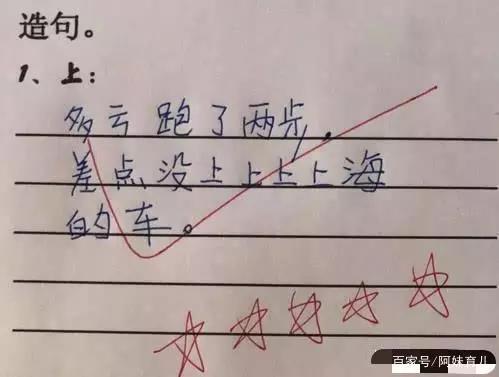 造句。
1、上：
多云跑了两步，
差点没上上上上海
的车。
百家号/阿妹育儿